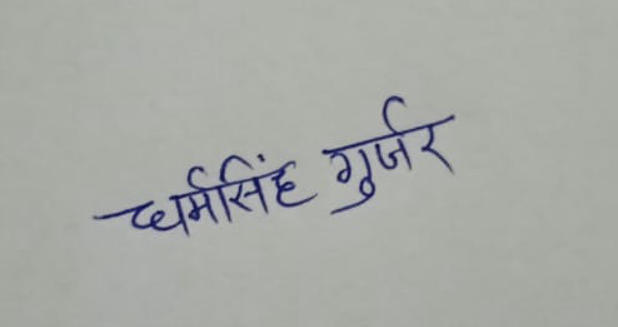 धर्मसिंह गुर्जर